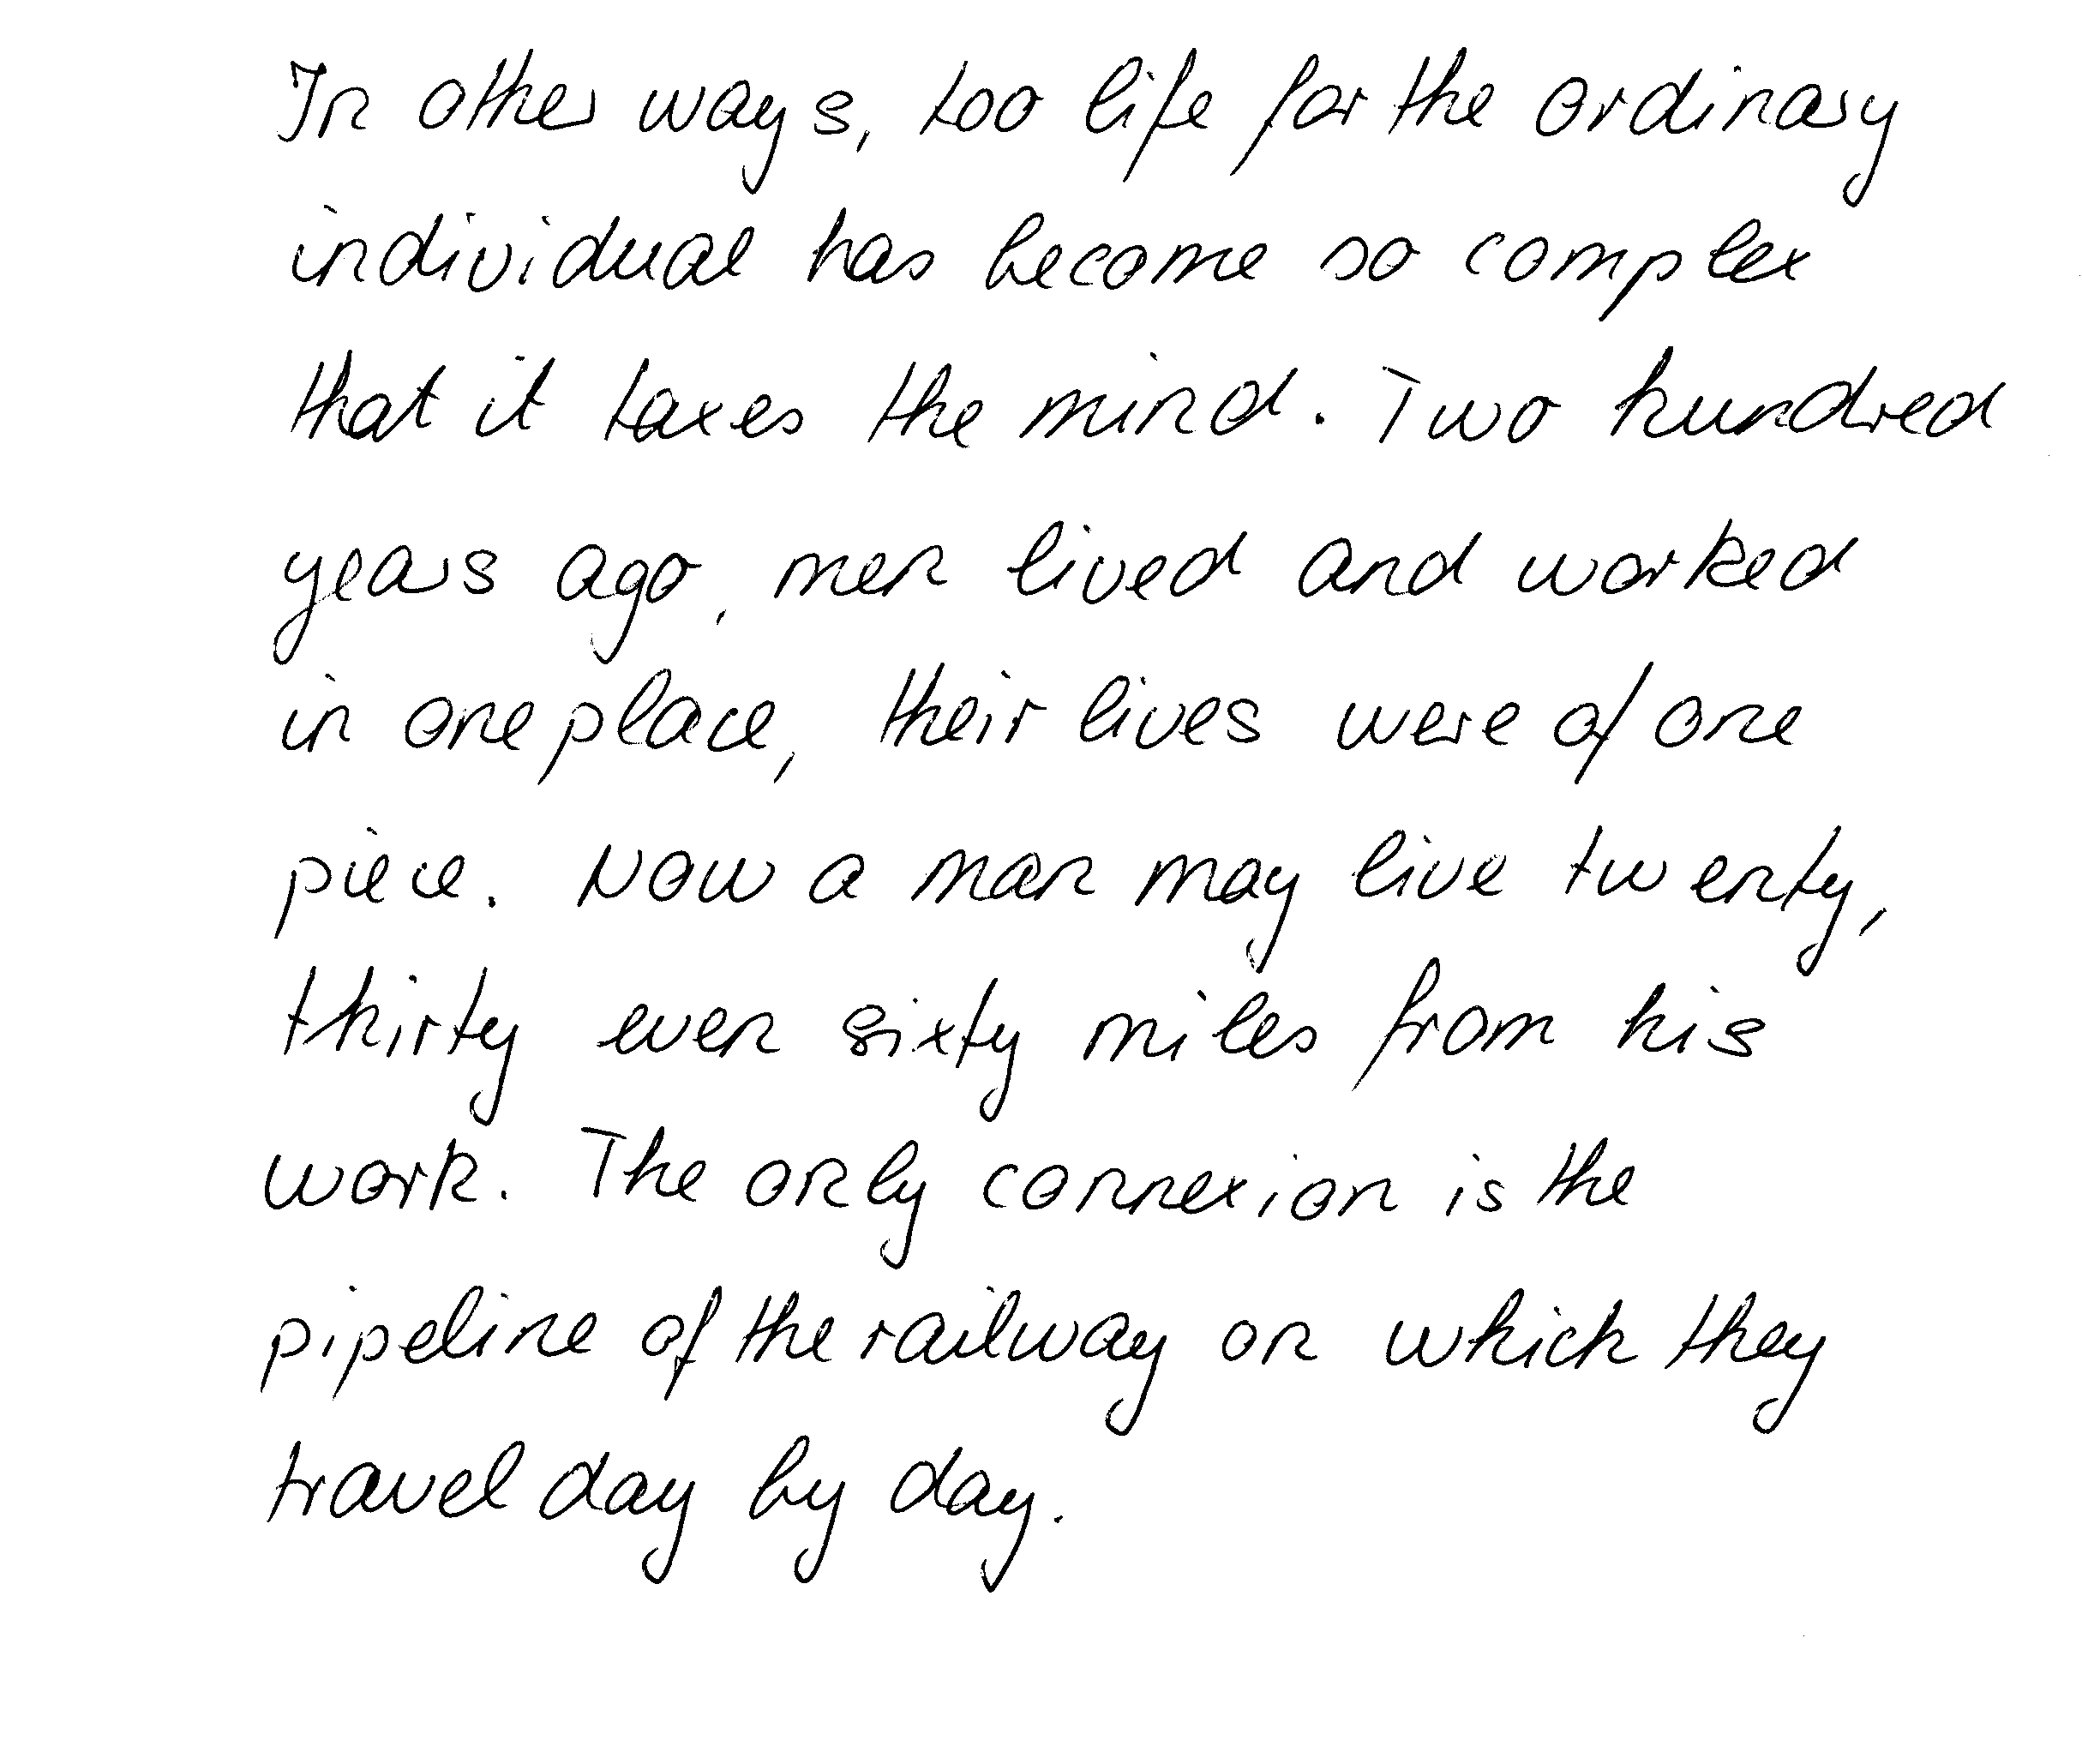 In other ways, too life for the ordinary
individual has become so complex
that it taxes the mind. Two hundred
years ago, men lived and worked
in one place, their lives were of one
piece. Now a man may live twenty,
thirty even sixty miles from his
work. The only connexion is the
pipeline of the railway on which they
travel day by day.